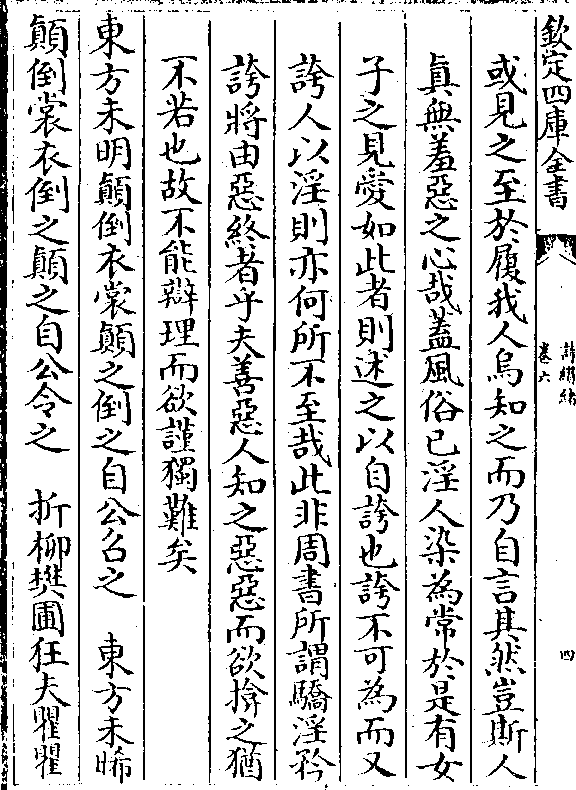 欽定四庫全書
詩纘緒
卷六
四
或見之至於履我人烏知之而乃自言其然豈斯人
真無羞惡之心哉蓋風俗已淫人染為常於是有女
子之見愛如此者則述之以自誇也誇不可為而又
誇人以淫則亦何所不至哉此非周書所謂驕淫矜
誇將由惡終者乎夫善惡人知之惡惡而欲揜之猶
不若也故不能辯理而欲謹獨難矣
東方未明顛倒衣裳顛之倒之自公召之　東方未晞
顛倒裳衣倒之顛之自公令之　折柳樊圃狂夫瞿瞿